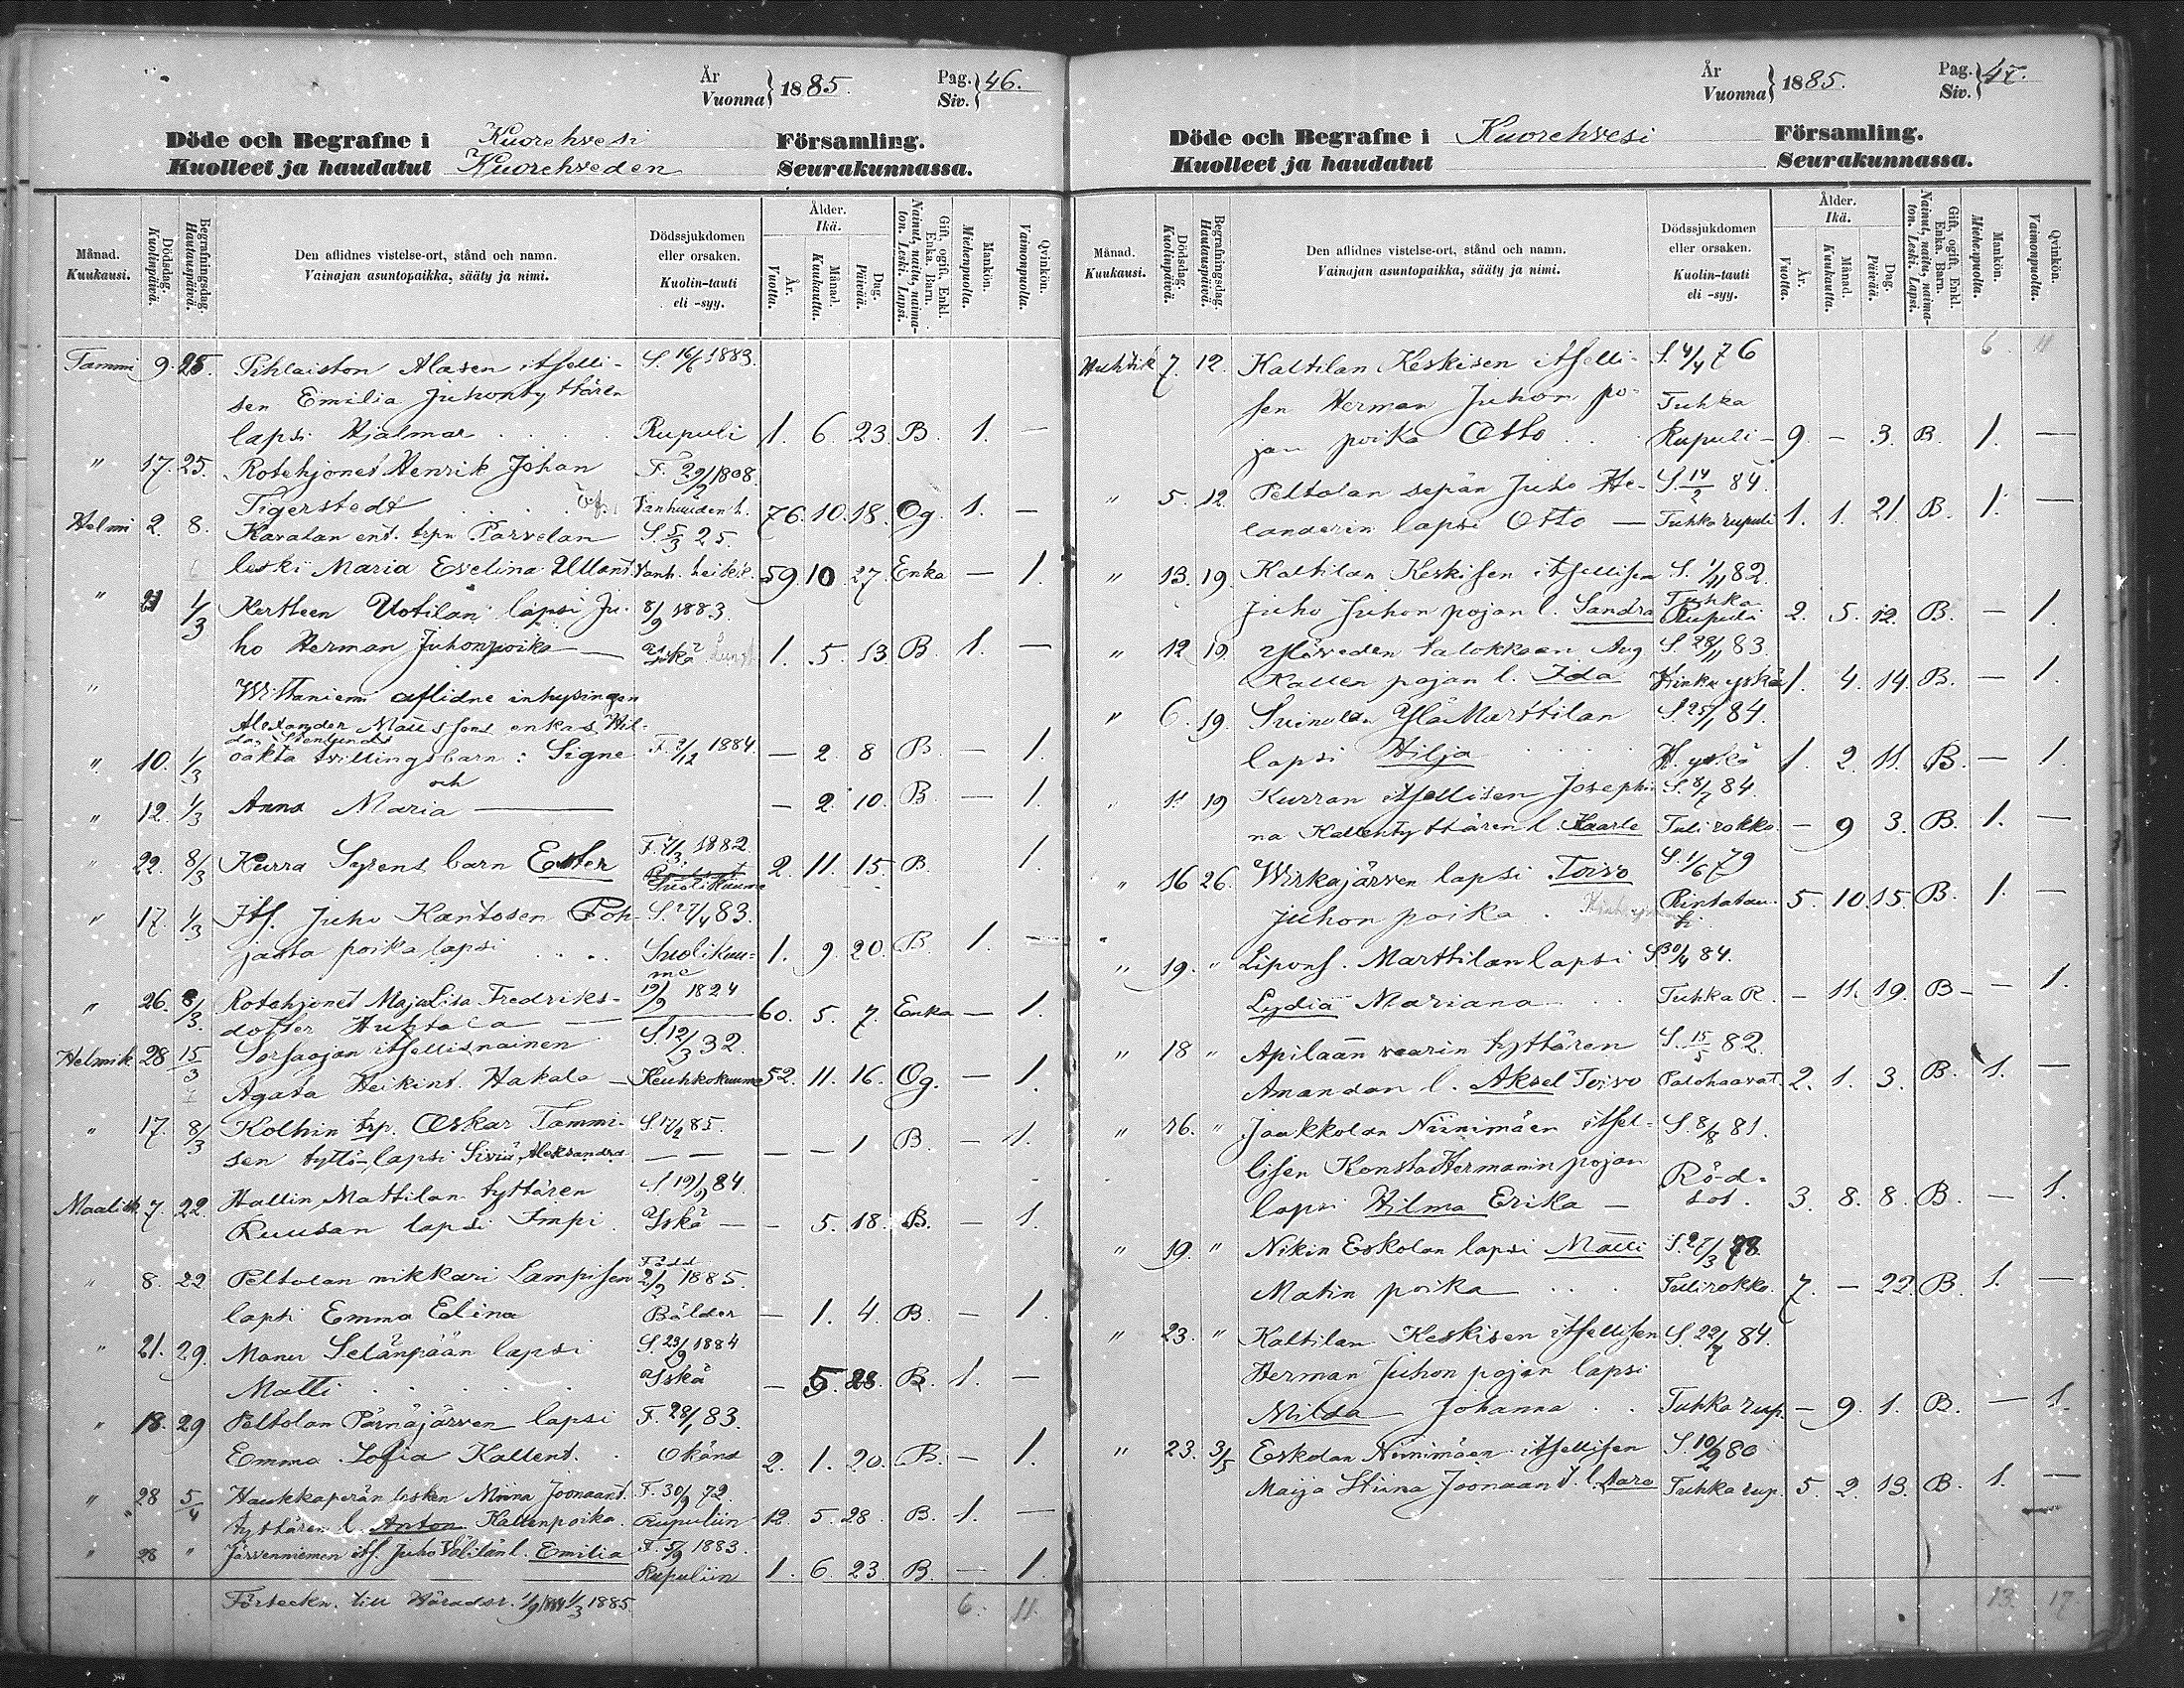 År
Vuonna } 1885.
Pag.
Siv. } 46.
Döde och Begrafne i Kuorehvesi Församling.
Kuolleet ja haudatut Kuorehveden Seurakunnassa.
Månad. Kuukausi.
Dödsdag. Kuolinpäivä.
Begrafningsdag. Hautauspäivä.
Den aflidnes vistelse-ort, stånd och namn.
Vainajan asuntopaikka, sääty ja nimi.
Dödssjukdomen eller orsaken.
Kuolin-tauti eli -syy.
Ålder. Ikä.
År. Vuotta.
Månad. Kuukautta.
Dag. Päivää.
Gift, ogift, Enkl. Enka. Barn.
Nainut, naitu, naimaton. Leski. Lapsi.
Mankön. Miehenpuolta.
Qvinkön. Vaimonpuolta.
Tammi 9. 25. Pihlaiston Alasen itselli- S. 16/6 1883.
sen Emilia Juhontyttären
lapsi Hjalmar Rupuli 1. 6. 23. B. 1. —
" 17. 25. Rotehjonet Henrik Johan F. 29/2 1808.
Tigerstedt Vanhuuden h. 76. 10. 18. Og. 1. —
Helmi 2. 8. Kavalan ent. trpn Parvelan S. 5/3 25.
leski Maria Evelina Vanh. heikk. 59. 10 27. Enka — 1.
" 21 1/3 Kertteen Uotilan lapsi Ju- 8/9 1883.
ho Herman Juhonpoika — 1. 5. 13 B 1. —
" Wittaniemi aflidne inhysingen
Alexander Maussons enkas Hil-
da Stenlunds
". 10. 1/3 oäkta tvillingsbarn: Signe F. 2/12 1884. — 2 8 B. — 1.
och
" 12. 1/3 Anna Maria — — 2. 10. B — 1.
" 22. 8/3 Kurra Syrens barn Ester F. 7/3. 1882. 2. 11. 15. B. 1.
Suolikuume
" 17. 1/3 Its. Juho Kantosen Poh- S. 27/4 83.
jasta poika lapsi Suolikuu- 1. 9. 20. B 1. —
me
" 26. 8/3. Rotehjonet Maja Lisa Fredriks- 19/9 1824
dotter Huhtala — 60. 5. 7. Enka — 1.
Helmik. 28 15/3 Sorsaojan itsellisnainen S. 12/3 32.
Agata Heikint. Hakala — Keuhkokuume 52. 11. 16. Og. — 1.
" 17. 8/3 Kolhin trp. Oskar Tammi- S. 17/2 85.
sen tyttö-lapsi Siviä Aleksandra — — — — 1 B. — 1.
Maalisk. 7. 22. Hallin Mattilan tyttären S 19/9 84.
Ruusan lapsi Impi Yskä — — 5. 18. B. — 1.
Född
" 8. 22 Peltolan nikkari Lampisen 2/2 1885.
lapsi Emma Elina Bölder — 1. 4. B. — 1.
" 21. 29. Manu Selänpään lapsi S. 23/9 1884
Matti Yskä — 5. 28. B. 1. —
" 18. 29 Peltolan Pärnäjärven lapsi F. 28/1 83.
Emma Sofia Kallent. Okänd 2. 1. 20. B. — 1.
" 28 5/4 Haukkaperän lesken Minna Joonaant. F. 30/9 72.
tyttären l. Anton Kallenpoika. Rupuliin 12. 5. 28. B. 1. —
" 28 " Järvenniemen its. Juho Välilän l. Emilia F. 5/9 1883.
Rupuliin 1. 6. 23. B. — 1.
Förteckn. till Häradsr. 1/9 1884 1/3 1885. 6. 11.
År
Vuonna } 1885.
Pag.
Siv. } 47.
Döde och Begrafne i Kuorehvesi Församling.
Kuolleet ja haudatut Seurakunnassa.
Månad. Kuukausi.
Dödsdag. Kuolinpäivä.
Begrafningsdag. Hautauspäivä.
Den aflidnes vistelse-ort, stånd och namn.
Vainajan asuntopaikka, sääty ja nimi.
Dödssjukdomen eller orsaken.
Kuolin-tauti eli -syy.
Ålder. Ikä.
År. Vuotta.
Månad. Kuukautta.
Dag. Päivää.
Gift, ogift, Enkl. Enka. Barn.
Nainut, naitu, naimaton. Leski. Lapsi.
Mankön. Miehenpuolta.
Qvinkön. Vaimonpuolta.
6 11
Huhtik 7. 12. Kaltilan Keskisen itselli- S. 4/4 76
sen Herman Juhon po- Tuhka
jan poika Otto Rupuli — 9 — 3. B. 1. —
" 5. 12. Peltolan sepän Juho He- S. 14/2 84.
landerin lapsi Otto — Tuhkarupuli 1. 1. 21. B. 1. —
" 13. 19. Kaltilan Keskisen itsellisen S. 1/11 82.
Juho Juhon pojan l. Sandra Tuhka Rupuli 2. 5. 12. B. — 1.
" 12 19. Ylöveden Salokkaan Aug S. 28/11 83.
Kallen pojan l. Ida Hinku yskä 1. 4. 14. B. — 1.
" 6. 19. Suinulan Ylä Marttilan S. 25/1 84.
lapsi Hilja H. yskä 1. 2. 11. B. — 1.
" 11 19 Kurran itsellisen Josephi- S. 8/7 84.
na Kallentyttären l. Kaarle Tulirokko. — 9 3. B. 1. —
" 16 26. Wirkajärven lapsi Toivo S. 1/6 79
Juhon poika Rintatau- 5. 10. 15. B 1. —
ti.
" 19. " Lipons. Marttilan lapsi S. 30/4 84.
Lydia Mariana Tuhka R. — 11. 19. B — — 1.
" 18 " Apilaan vaarin tyttären S. 15/5 82.
Amandan l. Aksel Toivo Palohaavat. 2. 1. 3. B. 1. —
" 16. " Jaakkolan Niinimäen itsel- S. 8/8 81.
lisen Konsta Hermannin pojan
lapsi Hilma Erika — Röd-sot. 3. 8. 8. B. — 1.
" 19. " Nikin Eskolan lapsi Matti S. 27/3 78.
Matin poika Tulirokko. 7. — 22. B. 1. —
" 23. " Kaltilan Keskisen itsellisen S. 22/7 84.
Herman Juhon pojan lapsi
Milda Johanna Tuhka rup. — 9. 1. B. — 1.
" 23. 3/5 Eskolan Niinimäen itsellisen S. 10/2 80
Maija Stiina Joonaan t. l. Aaro Tuhka rup. 5. 2. 13. B. 1. —
13. 17.